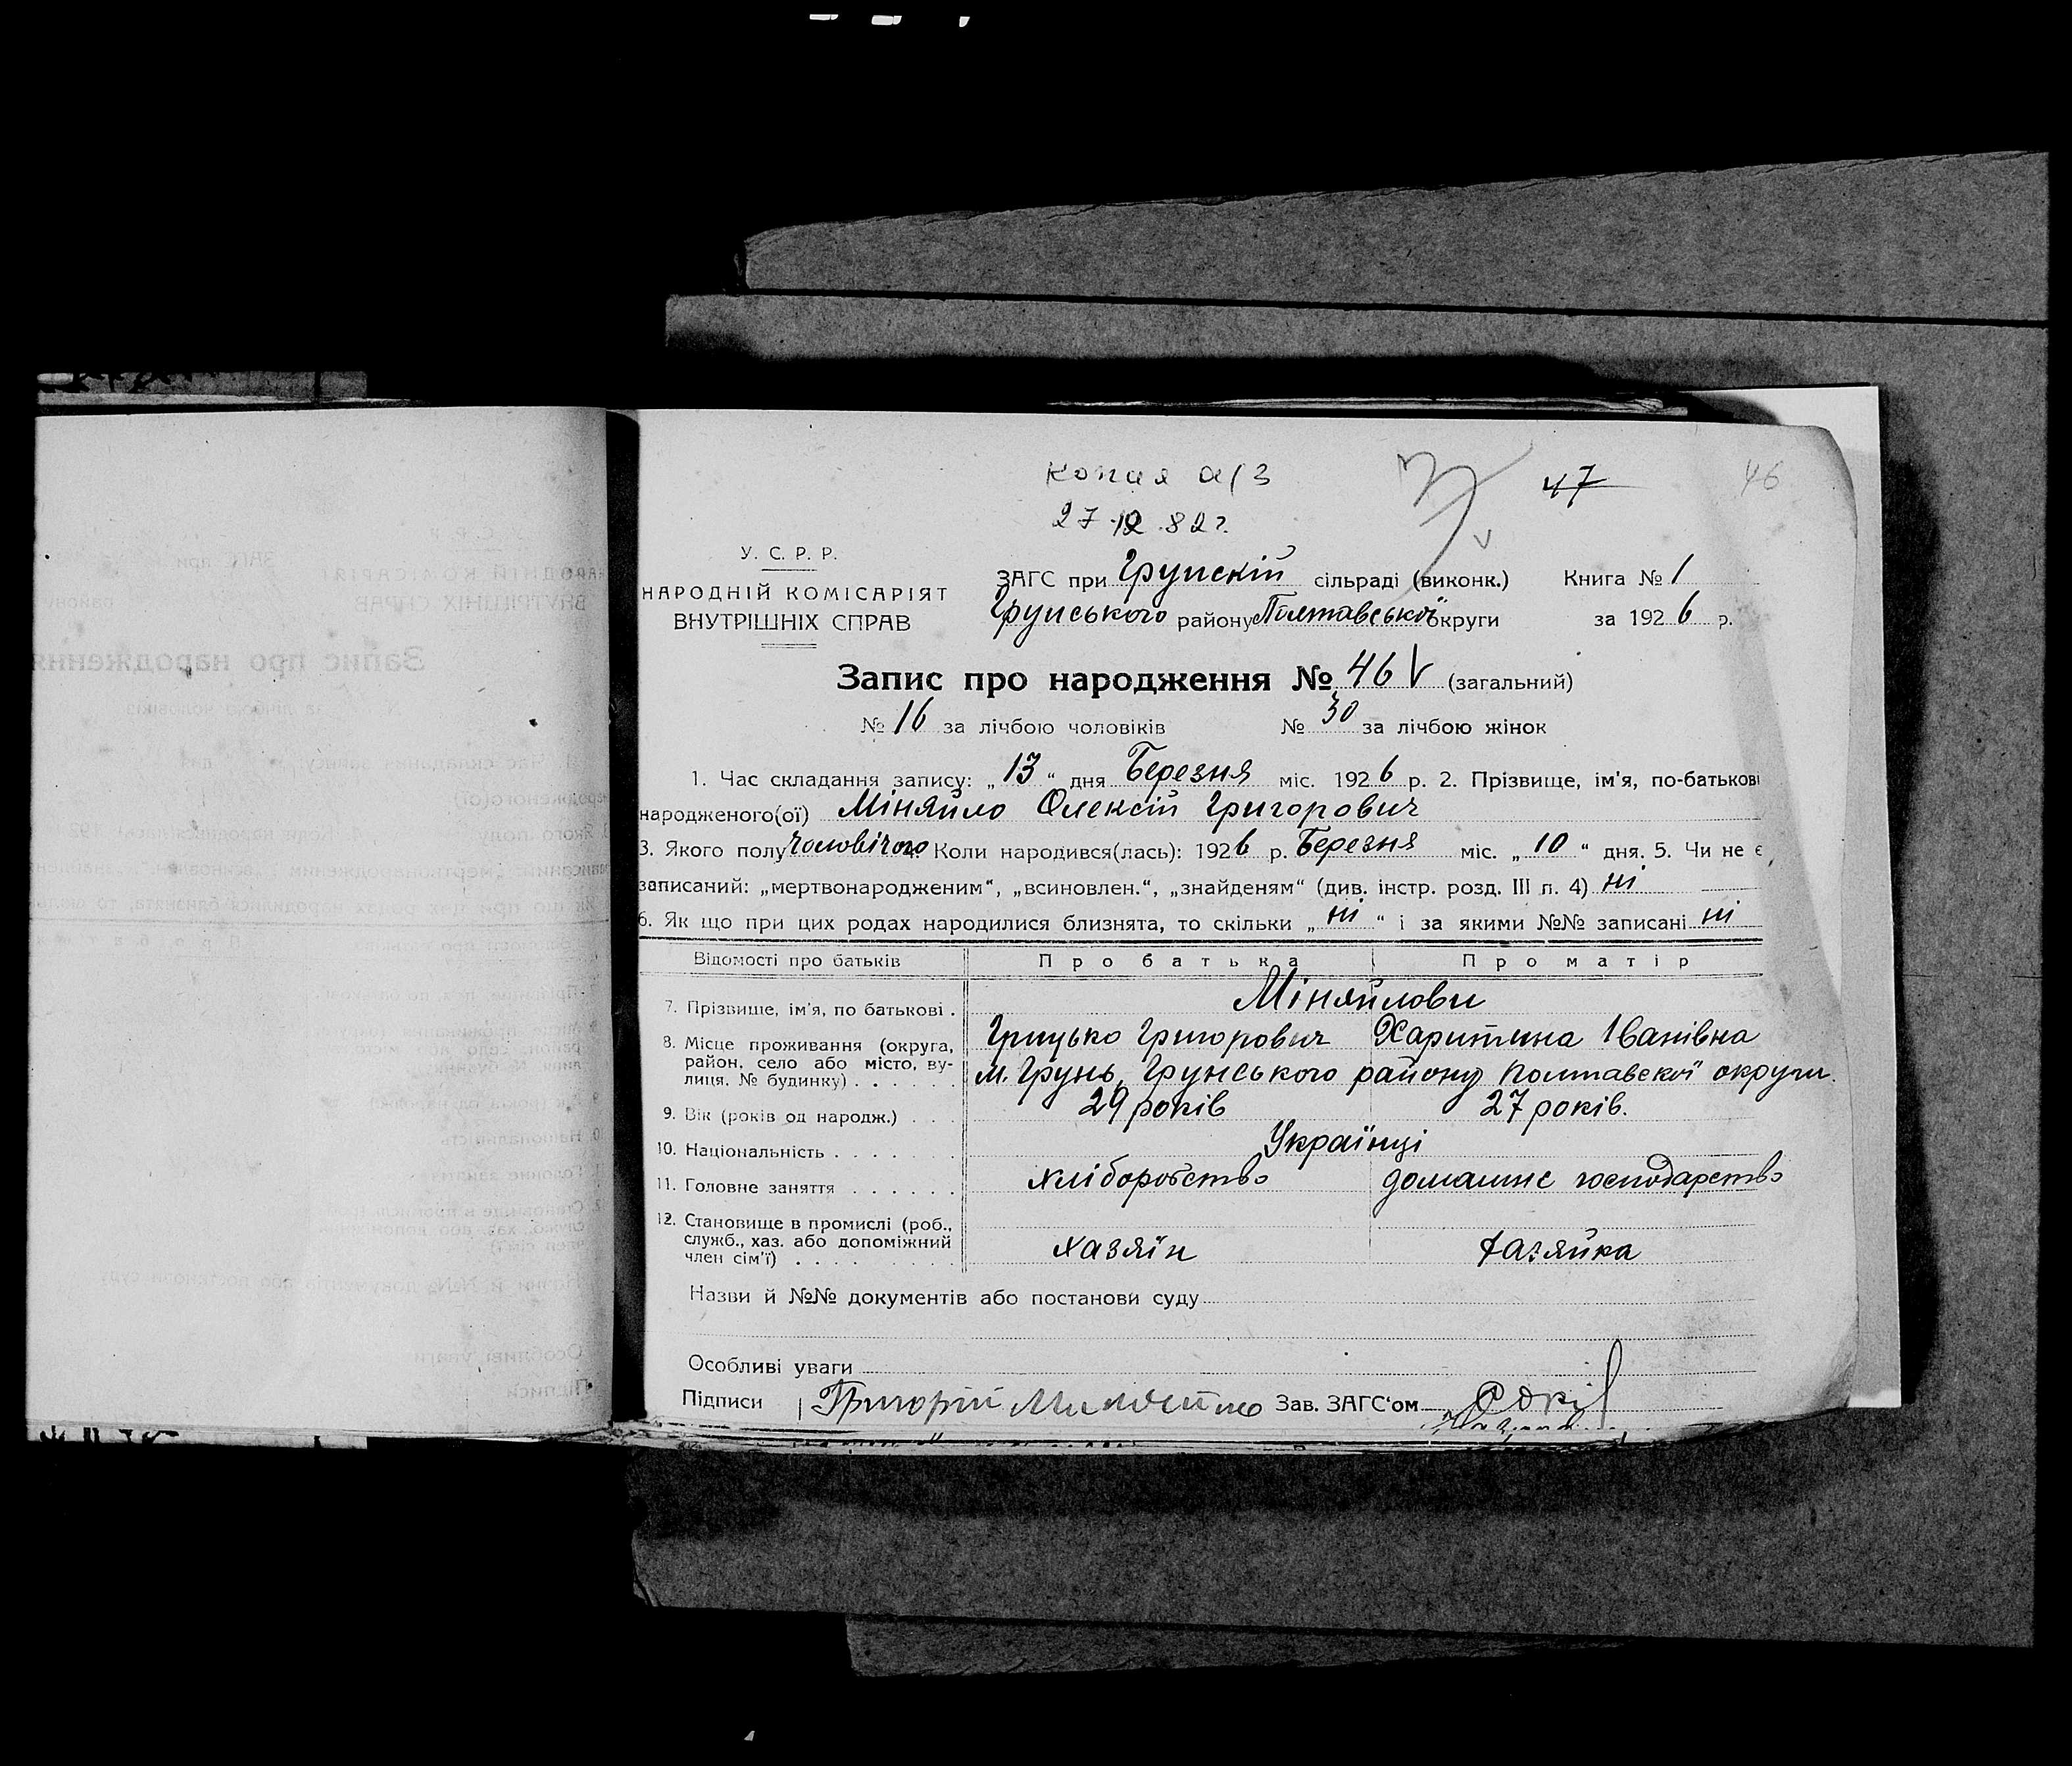 копия а/з
47
46
27.12.82г.
У. С. Р. Р.
НАРОДНІЙ КОМІСАРІЯТ
ВНУТРІШНІХ СПРАВ
ЗАГС при Грунскій сільраді (виконк.) Книга № 1
Грунського району Полтавської округи за 1926 р.
Запис про народження № 46 V (загальний)
№ 16 за лічбою чоловіків № 30 за лічбою жінок
1. Час складання запису: „13“ дня Березня міс. 1926 р. 2. Прізвище, ім'я, по-батькові
народженого(ої) Міняйло Олексій Григорович
3. Якого полу чоловічого Коли народився(лась): 1926 р. Березня міс. „10“ дня. 5. Чи не є
записаний: „мертвонародженим“, „всиновлен.“, „знайденям“ (див. інстр. розд. III п. 4) ні
6. Як що при цих родах народилися близнята, то скільки „ні“ і за якими №№ записані ні
Відомості про батьків Про батька Про матір
7. Прізвище, ім'я, по батькові . Міняйлови
Грицько Григорович Харитина Іванівна
8. Місце проживання (округа, район, село або місто, ву-
лиця, № будинку) . . . . . . м. Грунь, Грунського району Полтавскої округи.
9. Вік (років од народж.) . . . 29 років 27 років.
10. Національність . . . . . . . Українці
11. Головне заняття . . . . . . хліборобство домашнє господарство
12. Становище в промислі (роб.,
служб., хаз. або допоміжний
член сім'ї) . . . . хазяїн хазяйка
Назви й №№ документів або постанови суду
Особливі уваги
Підписи Григорій Зав. ЗАГС'ом Сокіл